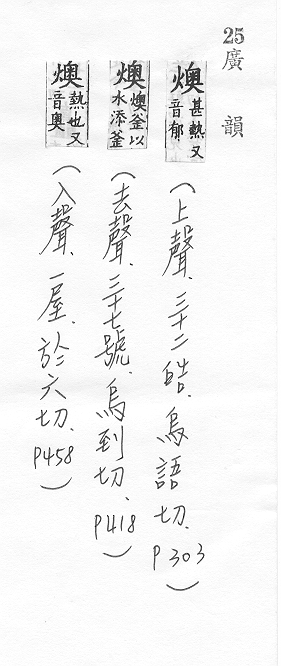 25
廣韻
燠 甚熱又音郁
(上聲、三十二皓、烏語切、P303)
燠 燠釜以水添釜
(去聲、三十七號、烏到切、P418)
燠 熱也又音奧
(入聲、一屋、於六切、P458)